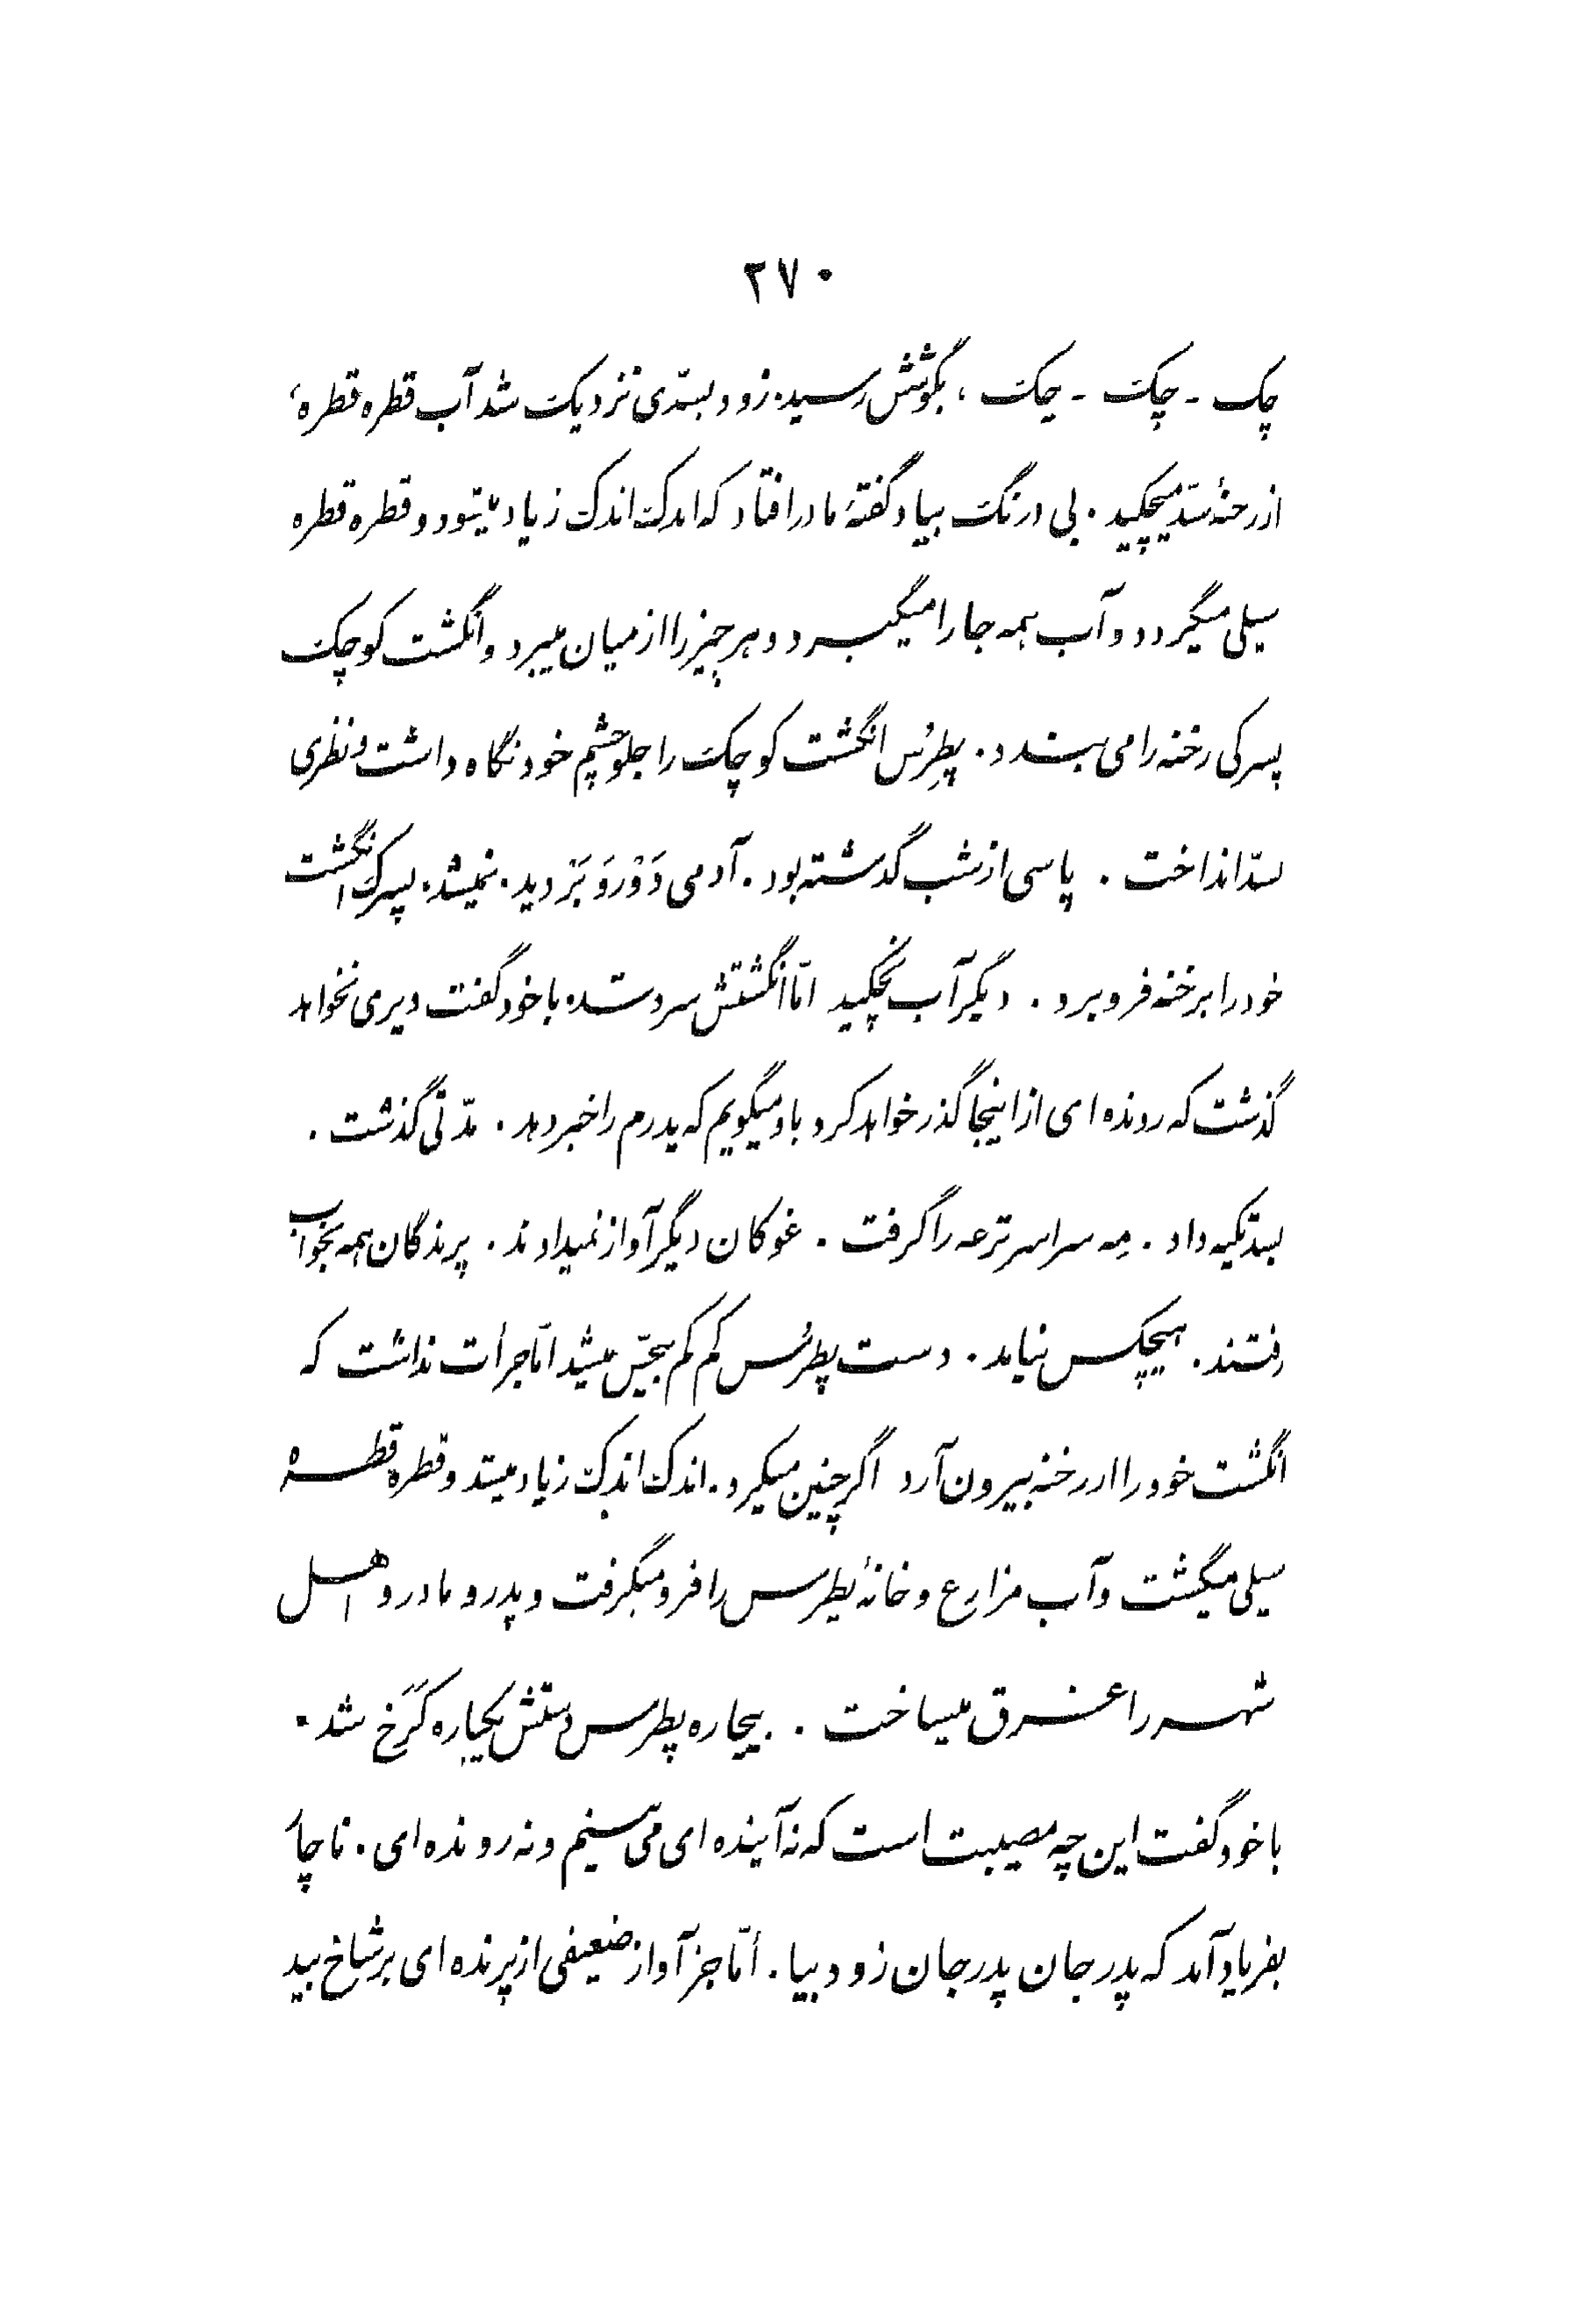 ۲۷۰
چک - چک - چک ، بگوشش رسید. زود بسدّی نزدیک شد آب قطره قطره
از رخنهٔ سدّ میچکید. بی درنگ بیاد گفتهٔ مادر افتاد که اندک اندک زیاد میشود و قطره قطره
سیلی میگردد و آب همه جا را میگیرد و هر چیز را از میان میبرد و انگشت کوچک
پسرکی رخنه را می بندد. پطرُس انگشت کوچک را جلو چشم خود نگاه داشت و نظری
بسدّ انداخت . پاسی از شب گذشته بود. آدمی دَوْر وَ بَرْ دیده نمیشد. پسرک انگشت
خود را برخنه فرو برد . دیگر آب نچکید امّا انگشتش سرد شده با خود گفت دیری نخواهد
گذشت که رونده ای از اینجا گذر خواهد کرد باو میگویم که پدرم را خبر دهد . مدّتی گذشت .
بسدّ تکیه داد . مِه سراسر ترعه را گرفت . غوکان دیگر آواز نمیدادند . پرندگان همه بخواب
رفتند. هیچکس نیامد. دست پطرُس کم کم بیحس میشد امّا جرأت نداشت که
انگشت خود را از رخنه بیرون آرد اگر چنین میکرد. اندک اندک زیاد میشد و قطره قطره
سیلی میگشت و آب مزارع و خانهٔ پطرس را فرو میگرفت و پدر و مادر و اهل
شهر را غرق میساخت . بیچاره پطرس دستش یکباره کَرَخ شد .
با خود گفت این چه مصیبت است که نه آینده ای می بینم و نه رونده ای . ناچار
بفریاد آمد که پدر جان پدر جان زود بیا. أمّا جز آواز ضعیفی از پرنده ای بر شاخ بید